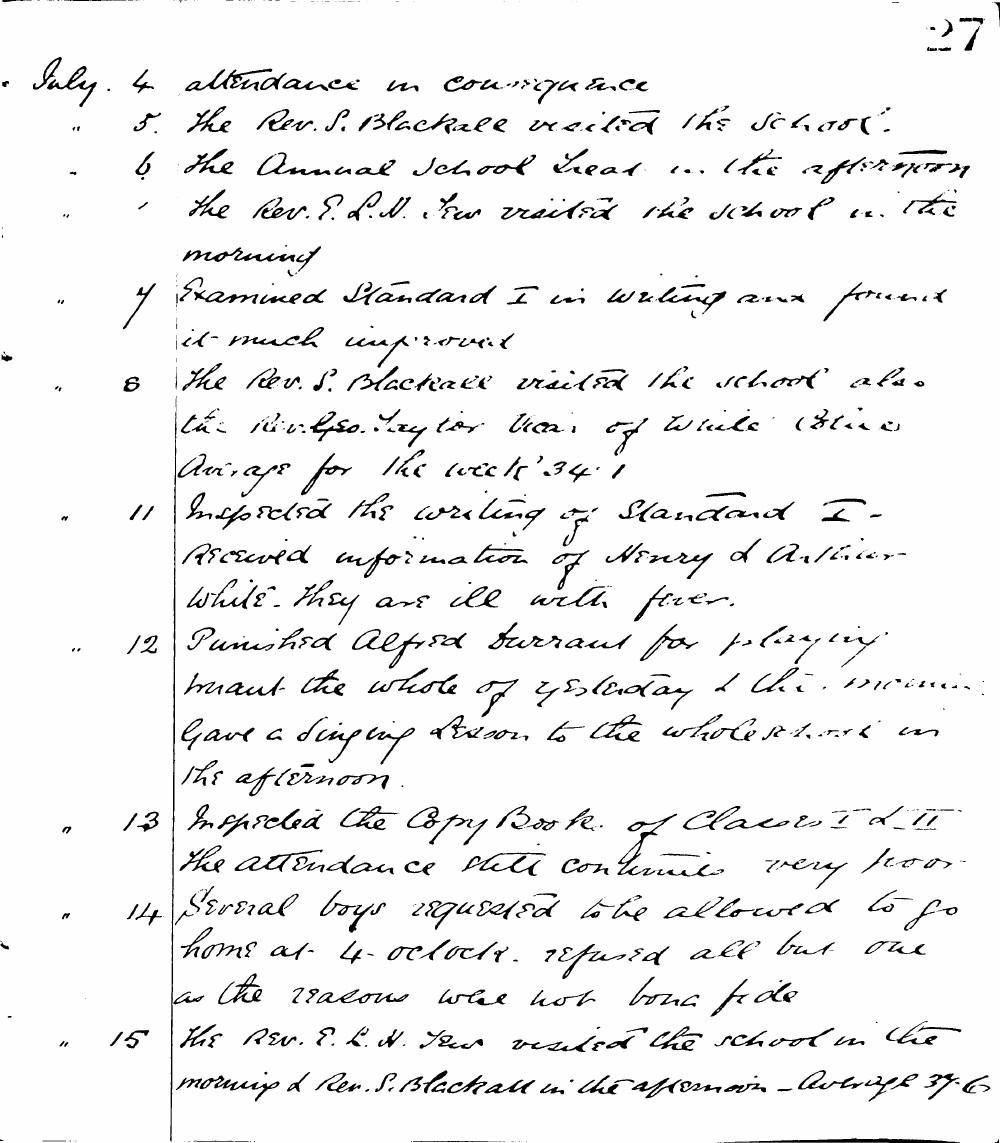 27
July. 4 attendance in consequence
" 5. The Rev. S. Blackall visited the School.
" 6 The Annual School Treat in the afternoon
" The Rev. E. L. H. Tew visited the school in the
morning
" 7 Examined Standard I in writing and found
it much improved
" 8 The Rev. S. Blackall visited the school also
the Rev. Geo. Taylor Vicar of White
Average for the week 34.1
" 11 Inspected the writing of Standard I -
Received information of Henry & Arthur
White. They are ill with fever.
" 12 Punished Alfred Durrant for playing
truant the whole of yesterday & the morning
Gave a Singing Lesson to the whole school in
the afternoon.
" 13 Inspected the Copy Book of Classes I & II
The attendance still continues very poor
" 14 Several boys requested to be allowed to go
home at 4-oclock. refused all but one
as the reasons were not bona fide
" 15 The Rev. E. L. H. Tew visited the school in the
morning & Rev. S. Blackall in the afternoon - Average 37.6